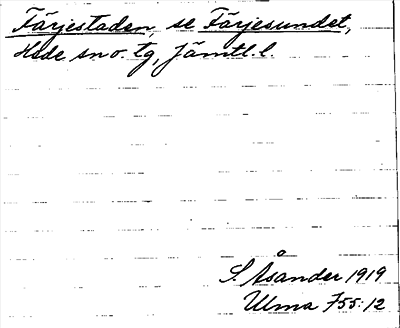 Färjestaden, se Färjesundet,
Hede sn o. tg, Jämtl. l.
S. Åsander 1919
Ulma 755:12